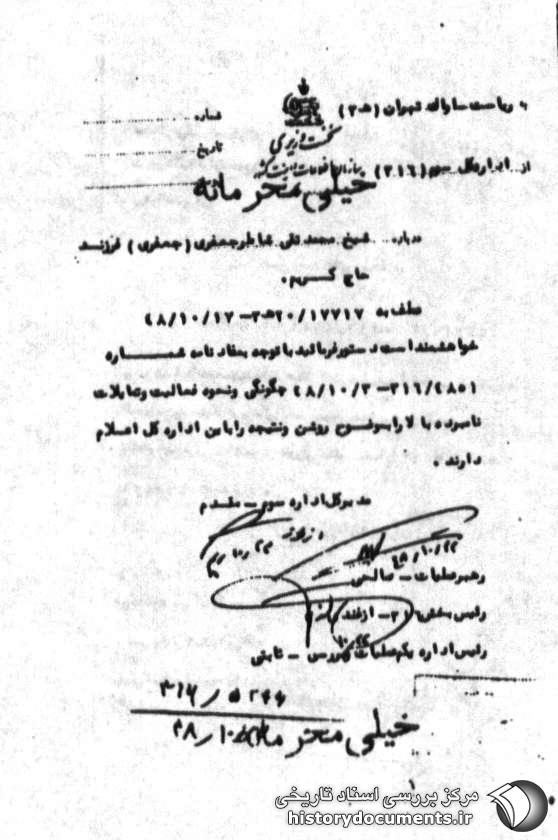 به ریاست ساواک تهران (۲۰ه۳)
شماره
نخست وزیری
تاریخ
سازمان اطلاعات و امنیت کشور
از اداره کل سوم (۳۱۶)
خیلی محرمانه
درباره شیخ محمد تقی شاطرجعفری (جعفری) فرزند
حاج کریم.
عطف به ۱۷۷۱۷/۲۰ه۳-۴۸/۱۰/۱۷
خواهشمند است دستور فرمائید با توجه بمفاد نامه شماره
۳۱۶/ -۴۸/۱۰/۳ چگونگی ونحوه فعالیت وتمایلات
نامبرده بالا را بوضوح روشن ونتیجه را باین اداره کل اعلام
دارند.
مدیرکل اداره سوم - مقدم
رهبر عملیات - صالحی
رئیس بخش ۲۱- ازغندی
رئیس اداره یکم عملیات وبررسی - ثابتی
خیلی محرمانه
مرکز بررسی اسناد تاریخی
historydocuments.ir